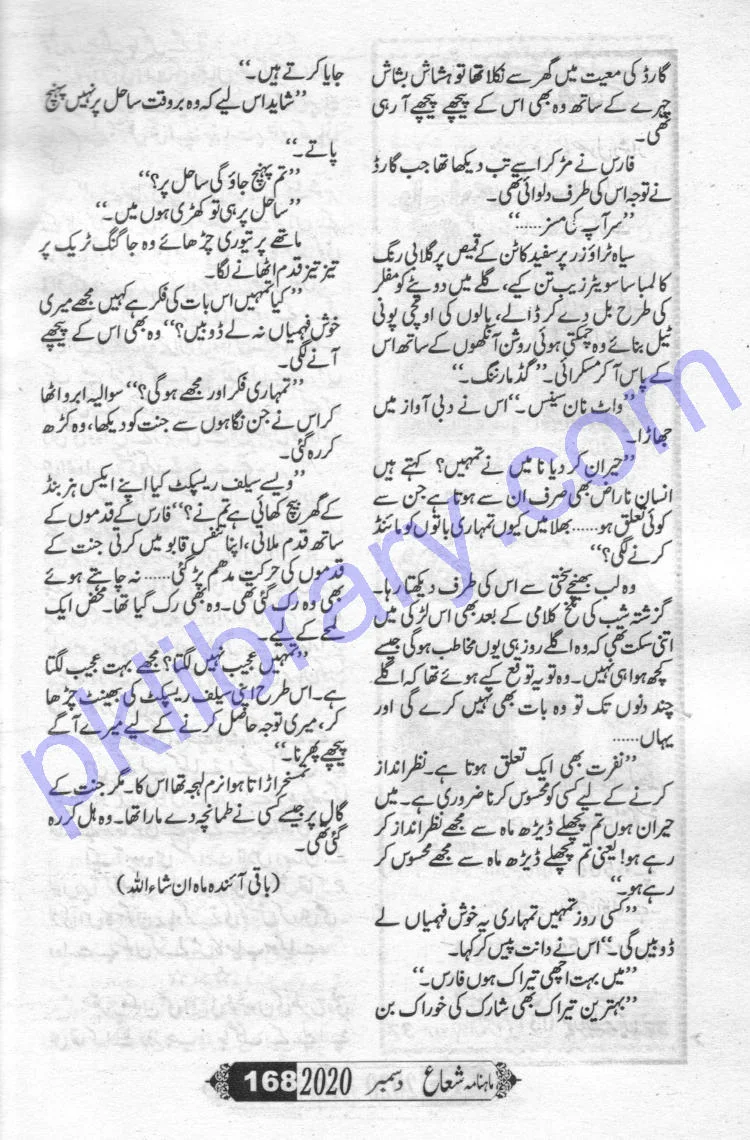 گارڈ کی معیت میں گھر سے نکلا تھا تو ہشاش بشاش
چہرے کے ساتھ وہ بھی اس کے پیچھے پیچھے آ رہی
تھی۔
فارس نے مڑ کر اسے تب دیکھا تھا جب گارڈ
نے توجہ اس کی طرف دلوائی تھی۔
”سر آپ کی مسز......“
سیاہ ٹراؤزر پر سفید کاٹن کے قمیص پر گلابی رنگ
کا لمبا سا سویٹر زیب تن کیے، گلے میں دوپٹے کو مفلر
کی طرح بل دے کر ڈالے، بالوں کی اونچی پونی
ٹیل بنائے وہ چمکتی ہوئی روشن آنکھوں کے ساتھ اس
کے پاس آ کر مسکرائی۔ ”گڈ مارننگ۔“
”واٹ نان سینس۔“ اس نے دبی آواز میں
جھاڑا۔
”حیران کر دیا نا میں نے تمہیں؟ کہتے ہیں
انسان ناراض بھی صرف ان سے ہوتا ہے جن سے
کوئی تعلق ہو...... بھلا میں کیوں تمہاری باتوں کو مائنڈ
کرنے لگی؟“
وہ لب بھینچے سختی سے اس کی طرف دیکھتا رہا۔
گزشتہ شب کی تلخ کلامی کے بعد بھی اس لڑکی میں
اتنی سکت تھی کہ وہ اگلے روز ہی یوں مخاطب ہوگی جیسے
کچھ ہوا ہی نہیں۔ وہ تو یہ توقع کیے ہوئے تھا کہ اگلے
چند دنوں تک تو وہ بات بھی نہیں کرے گی اور
یہاں......
”نفرت بھی ایک تعلق ہوتا ہے۔ نظر انداز
کرنے کے لیے کسی کو محسوس کرنا ضروری ہے۔ میں
حیران ہوں تم پچھلے ڈیڑھ ماہ سے مجھے نظر انداز کر
رہے ہو! یعنی تم پچھلے ڈیڑھ ماہ سے مجھے محسوس کر
رہے ہو۔“
”کسی روز تمہیں تمہاری یہ خوش فہمیاں لے
ڈوبیں گی۔“ اس نے دانت پیس کر کہا۔
”میں بہت اچھی تیراک ہوں فارس۔“
”بہترین تیراک بھی شارک کی خوراک بن
جایا کرتے ہیں۔“
”شاید اس لیے کہ وہ بر وقت ساحل پر نہیں پہنچ
پاتے۔“
”تم پہنچ جاؤ گی ساحل پر؟“
”ساحل پر ہی تو کھڑی ہوں میں۔“
ماتھے پر تیوری چڑھائے وہ جاگنگ ٹریک پر
تیز تیز قدم اٹھانے لگا۔
”کیا تمہیں اس بات کی فکر ہے کہیں مجھے میری
خوش فہمیاں نہ لے ڈوبیں؟“ وہ بھی اس کے پیچھے
آنے لگی۔
”تمہاری فکر اور مجھے ہوگی؟“ سوالیہ ابرو اٹھا
کر اس نے جن نگاہوں سے جنت کو دیکھا، وہ کڑھ
کر رہ گئی۔
”ویسے سیلف ریسپکٹ کیا اپنے ایکس ہزبنڈ
کے گھر بیچ کھائی ہے تم نے؟“ فارس کے قدموں کے
ساتھ قدم ملاتی، اپنا تنفس قابو میں کرتی جنت کے
قدموں کی حرکت مدھم پڑ گئی...... نہ چاہتے ہوئے
بھی وہ رک گئی تھی۔ وہ بھی رک گیا تھا۔ محض ایک
لمحے کے لیے۔
”تمہیں عجیب نہیں لگتا؟ مجھے بہت عجیب لگتا
ہے۔ اس طرح اپنی سیلف ریسپکٹ کی بھینٹ چڑھا
کر، میری توجہ حاصل کرنے کے لیے میرے آگے
پیچھے پھرنا۔“
تمسخر اڑاتا ہوا نرم لہجہ تھا اس کا۔ مگر جنت کے
گال پر جیسے کسی نے طمانچہ دے مارا تھا۔ وہ ہل کر رہ
گئی تھی۔
(باقی آئندہ ماہ ان شاء اللہ)
ماہنامہ شعاع دسمبر 2020 168
pklibrary.com